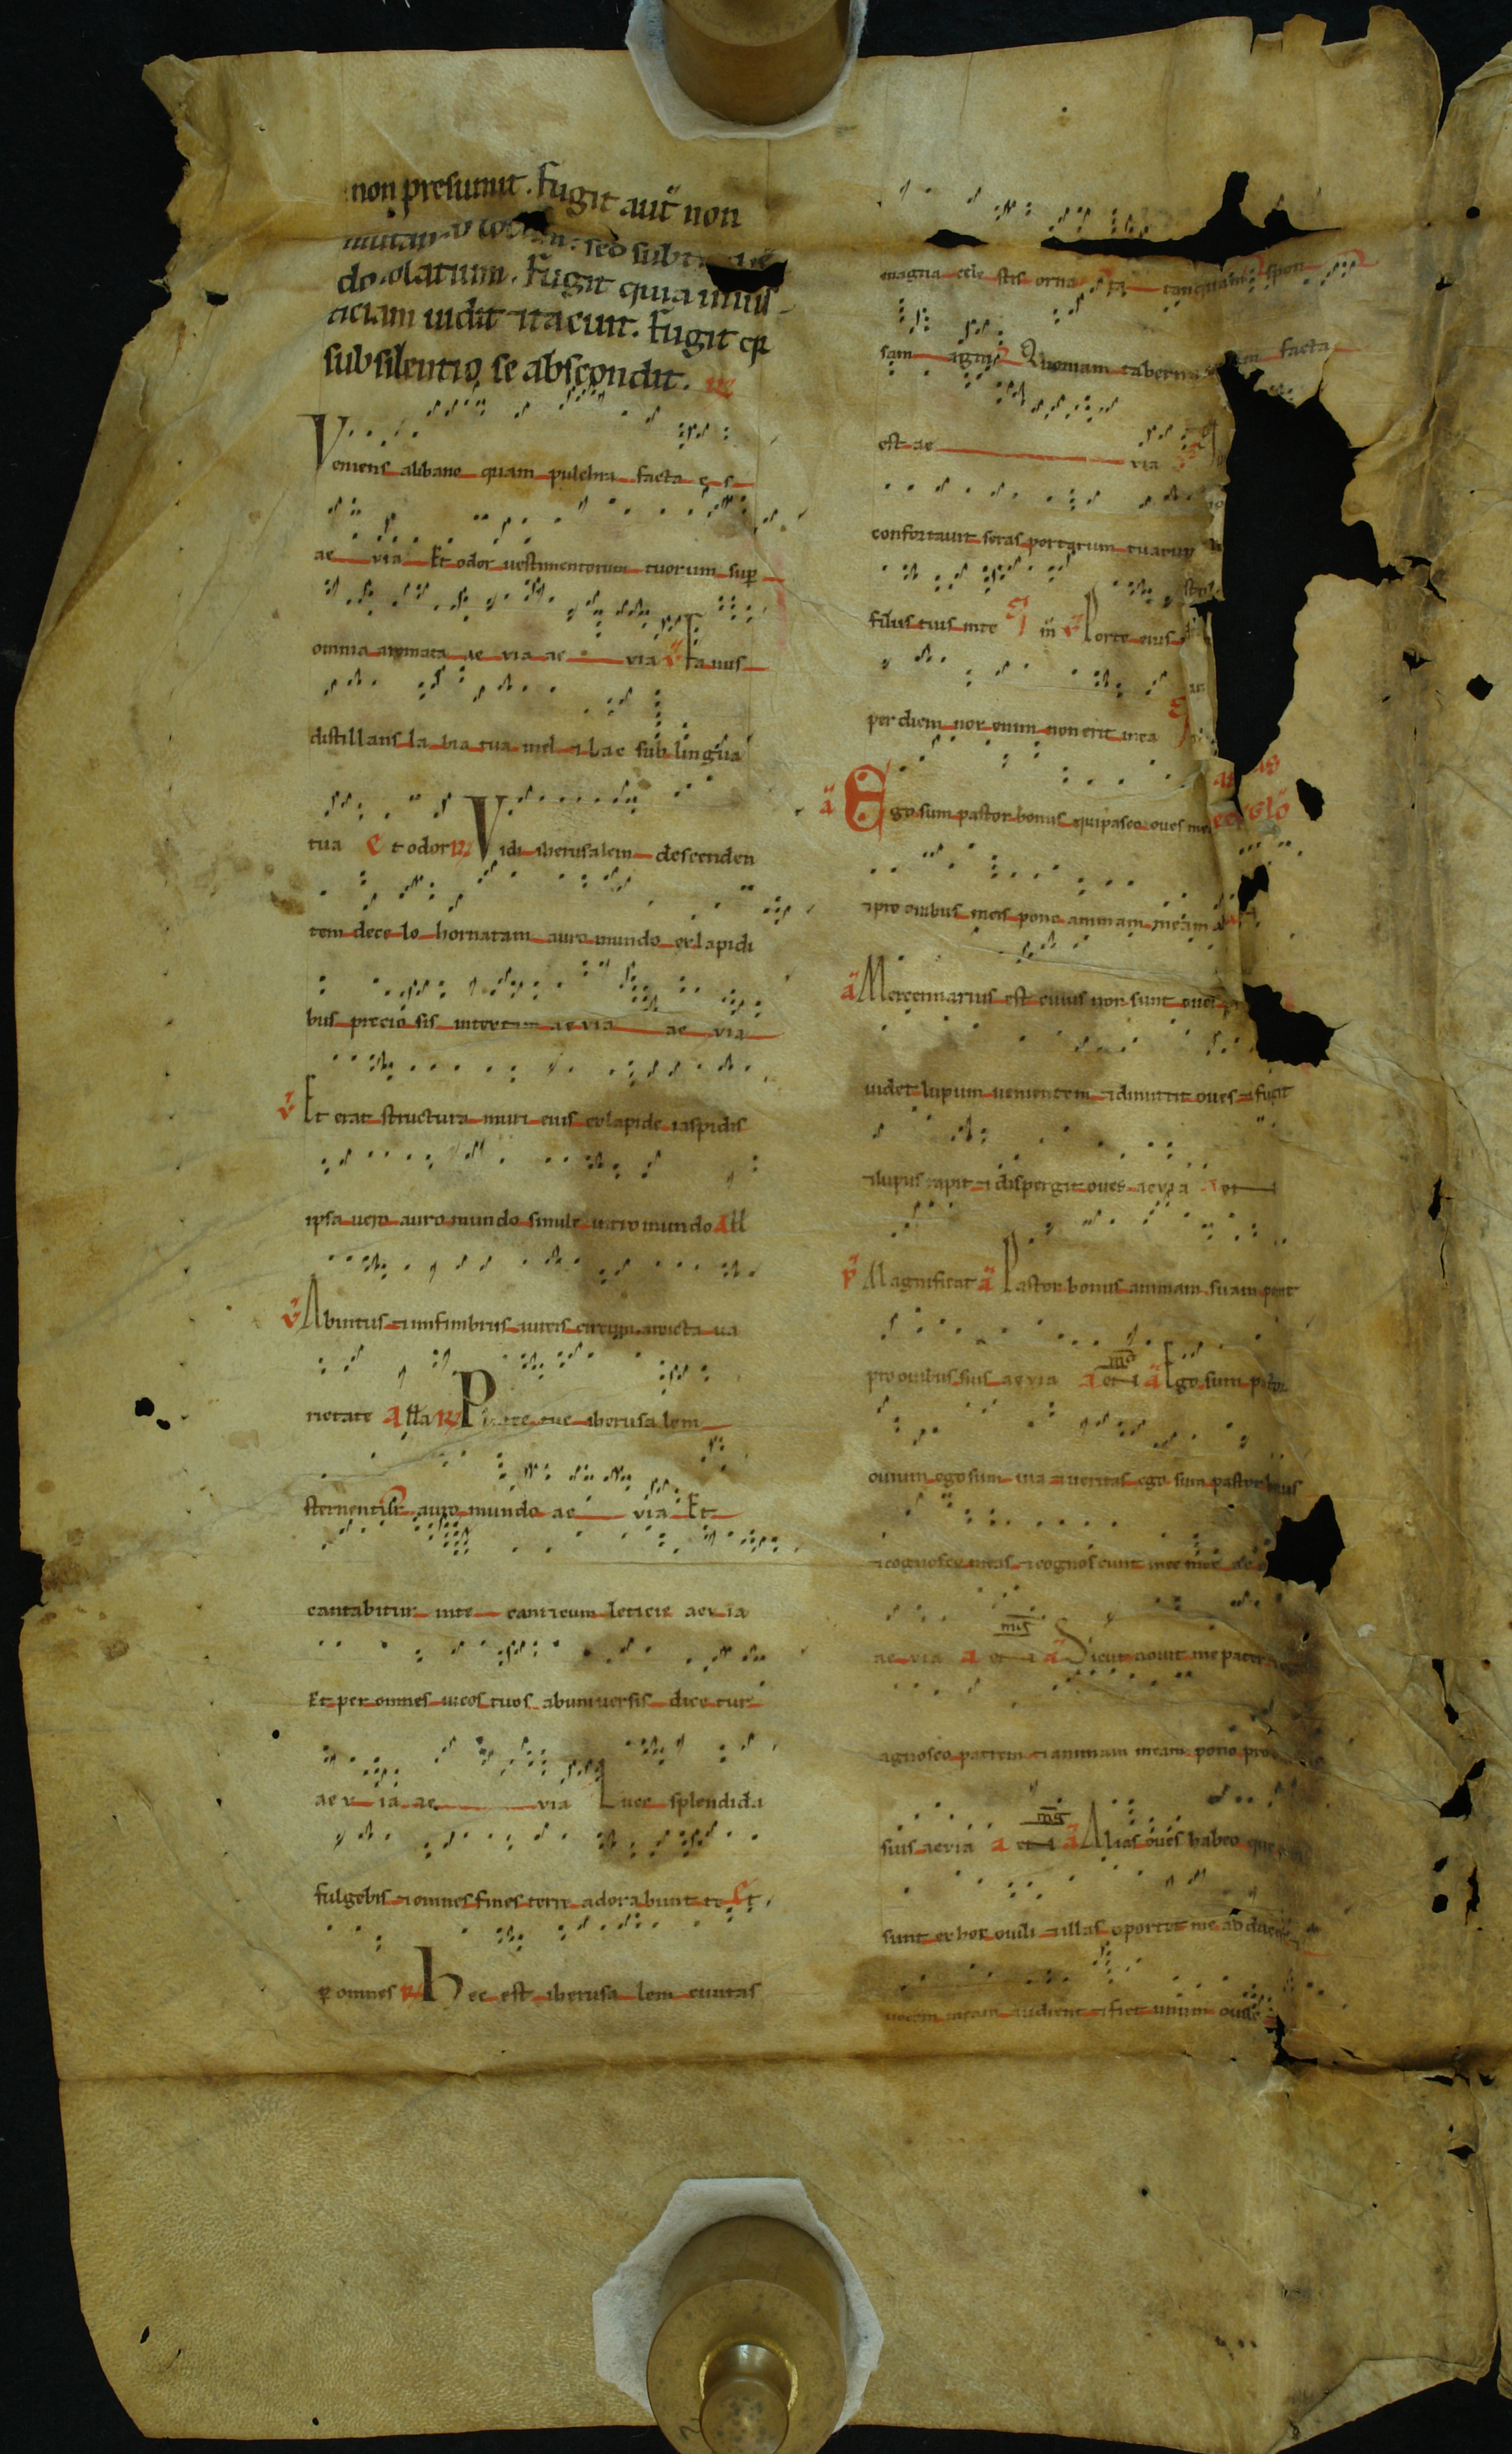 non presumit. Fugit aut̄ non
mutando locum: sed subt
do solatium. Fugit quia iniu
ticiam uidit & tacuit. Fugit q̄
sub silentio se abscondit. R̄
Veniens alibano quam pulchra facta es
ae via Et odor uestimentorum tuorum sup̄
omnia aromata ae via ae via v̄ Fauus
distillans labia tua mel & lac sub lingua
tua Et odor R̄ Vidi iherusalem descenden
tem decelo hornatam auro mundo exlapidi
bus preciosis intextam aevia ae via
v̄ Et erat structura muri eius exlapide iaspidis
ipsa uero auro mundo simile uitro mundo All
v̄ Abintus & infimbriis aureis circumamicta ua
rietate alla R̄ Platee tue iherusalem
sternentur auro mundo ae via Et
cantabitur inte canticum leticie aevia
Et per omnes uicos tuos abuniuersis dicetur
aev ia ae via Luce splendida
fulgebis & omnes fines terre adorabunt te Et
p̄ omnes R̄ Hec est iherusalem ciuitas
magna celestis ornata tanquam spon
sam agni Quoniam taberna facta
est ae via
confortauit seras portarum tuarum
filiis tuis inte in v̄ Porte eius
per diem nox enim non erit inea
ā Ego sum pastor bonus qui pasco oues me
& pro ouibus meis pono animam meam
ā Mercennarius est cuius non sunt oues
uidet lupum uenientem & dimittit oues & fugit
& lupus rapit & dispergit oues aevia
p̄ Magnificat ā Pastor bonus animam suam ponit
pro ouibus suis aevia ā Ego sum pastor
ouium ego sum uia & ueritas ego sum pastor bonus
& cognosco meas & cognoscunt me mee ae
ae via ā Sicut nouit me pater
agnosco patrem & animam meam pono pro
suis aevia ā Alias oues habeo que
sunt exhoc ouili & illas oportet me adducere
uocem meam audient & fiet unum ouile